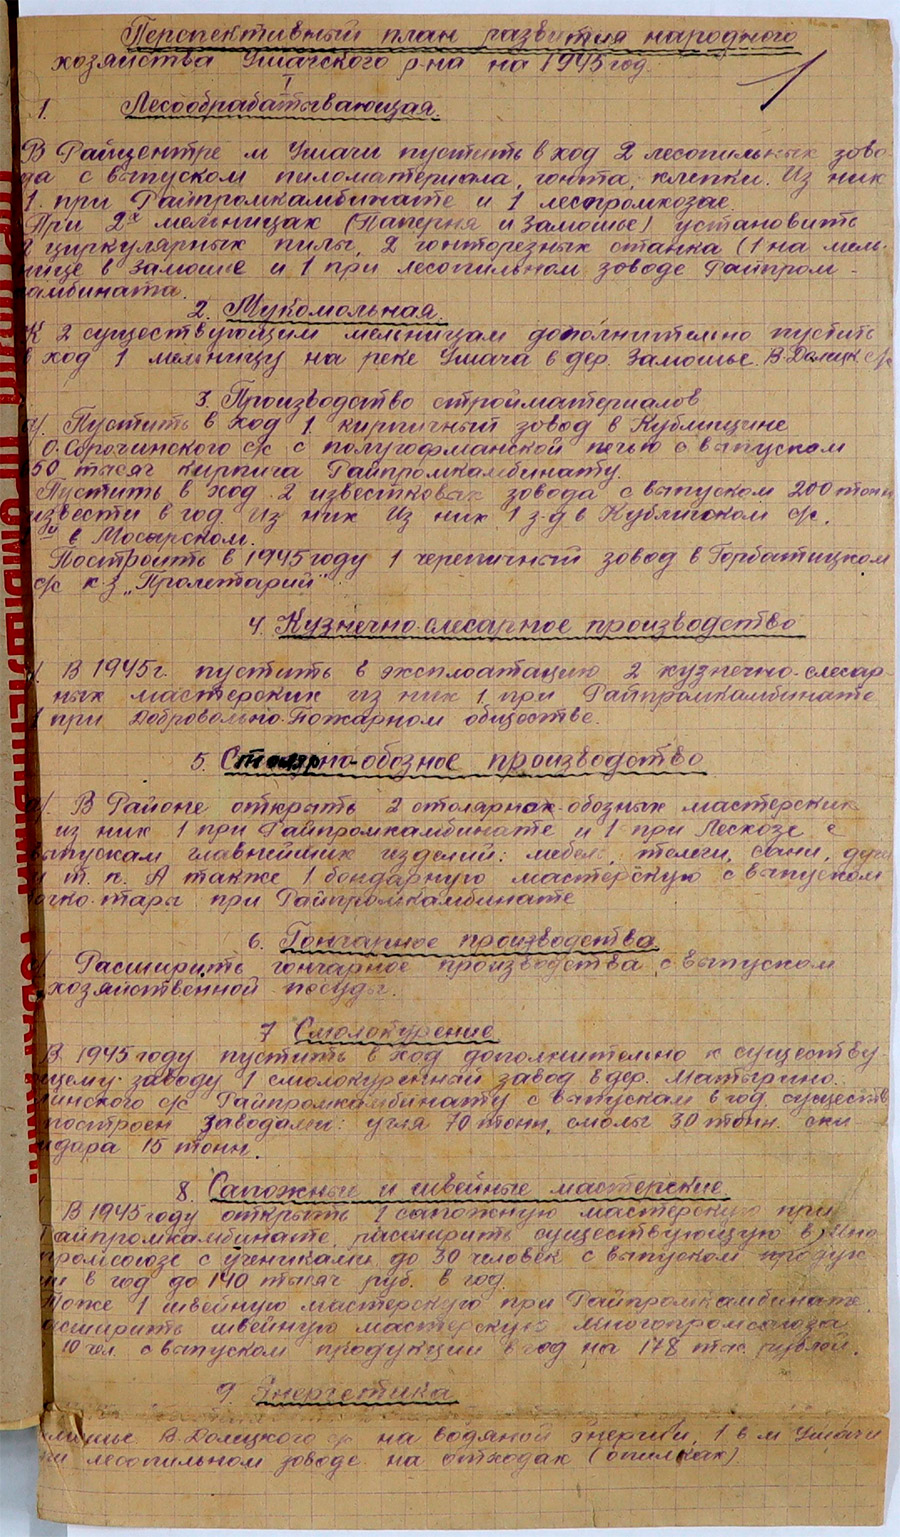 Перспективный план развития народного
хозяйства Ушачского р-на на 1945 год.
1
I
1. Лесообрабатывающая.
В Райцентре м Ушачи пустить в ход 2 лесопильных заво-
да с выпуском пиломатериала, гонта, клепки. Из них
1 при Райпромкамбинате и 1 леспромхозе.
При 2х мельницах (Паперня и Замошье) установить
2 циркулярных пилы, 2 гонторезных станка (1 на мель-
нице в Замошье и 1 при лесопильном заводе Райпром-
камбината.
2. Мукомольная.
К 2 существующим мельницам дополнительно пустить
в ход 1 мельницу на реке Ушача в дер. Замошье. В-Долецк с/с
3. Производство стройматериалов
а/. Пустить в ход 1 кирпичный завод в Кублищине
О.Сорочинского с/с с полугофманской печью с выпуском
50 тысяч кирпича Райпромкамбинату.
Пустить в ход 2 известковых завода с выпуском 200 тонн
извести в год. Из них Из них 1 з-д в Кубличском с/с,
в Мосарском.
Построить в 1945 году 1 черепичный завод в Горбатицком
с/с к-з „Пролетарий"
4. Кузнечно-слесарное производство
В 1945 г. пустить в эксплоатацию 2 кузнечно-слесар-
ных мастерских из них 1 при Райпромкамбинате
1 при Добровольно-Пожарном обществе.
5. Столярно-обозное производство
а/. В Районе открыть 2 столярных-обозных мастерских
из них 1 при Райпромкамбинате и 1 при Лесхозе с
выпускам главнейших изделий: мебель, телеги, сани, дуги
и т.п. А также 1 бондарную мастерскую с выпуском
бочко-тары при Райпромкамбинате
6. Гончарное производства
Расширить гончарное производства с выпуском
хозяйственной посуды.
7 Смолокурение
В 1945 году пустить в ход дополнительно к существу-
ющему заводу 1 смолокуренный завод в дер. Матырино.
с/с Райпромкамбинату с выпускам в год существ
построен заводами: угля 70 тонн, смолы 30 тонн. ски-
пидара 15 тонн.
8. Сапожные и швейные мастерские
В 1945 году открыть 1 сапожную мастерскую при
Райпромкамбинате, расширить существующую в Мно-
промсоюзе с учениками до 30 человек с выпуском продук-
ии в год до 140 тысяч руб. в год.
Тоже 1 швейную мастерскую при Райпромкамбинате.
Расширить швейную мастерскую Многопромсоюза
10 чел. с выпуском продукции в год на 178 тыс. рублей.
9. Энергетика
В-Долецкого с/с на водяной энергии, 1 в м Ушачи
при лесопильном заводе на отходах (опилках)